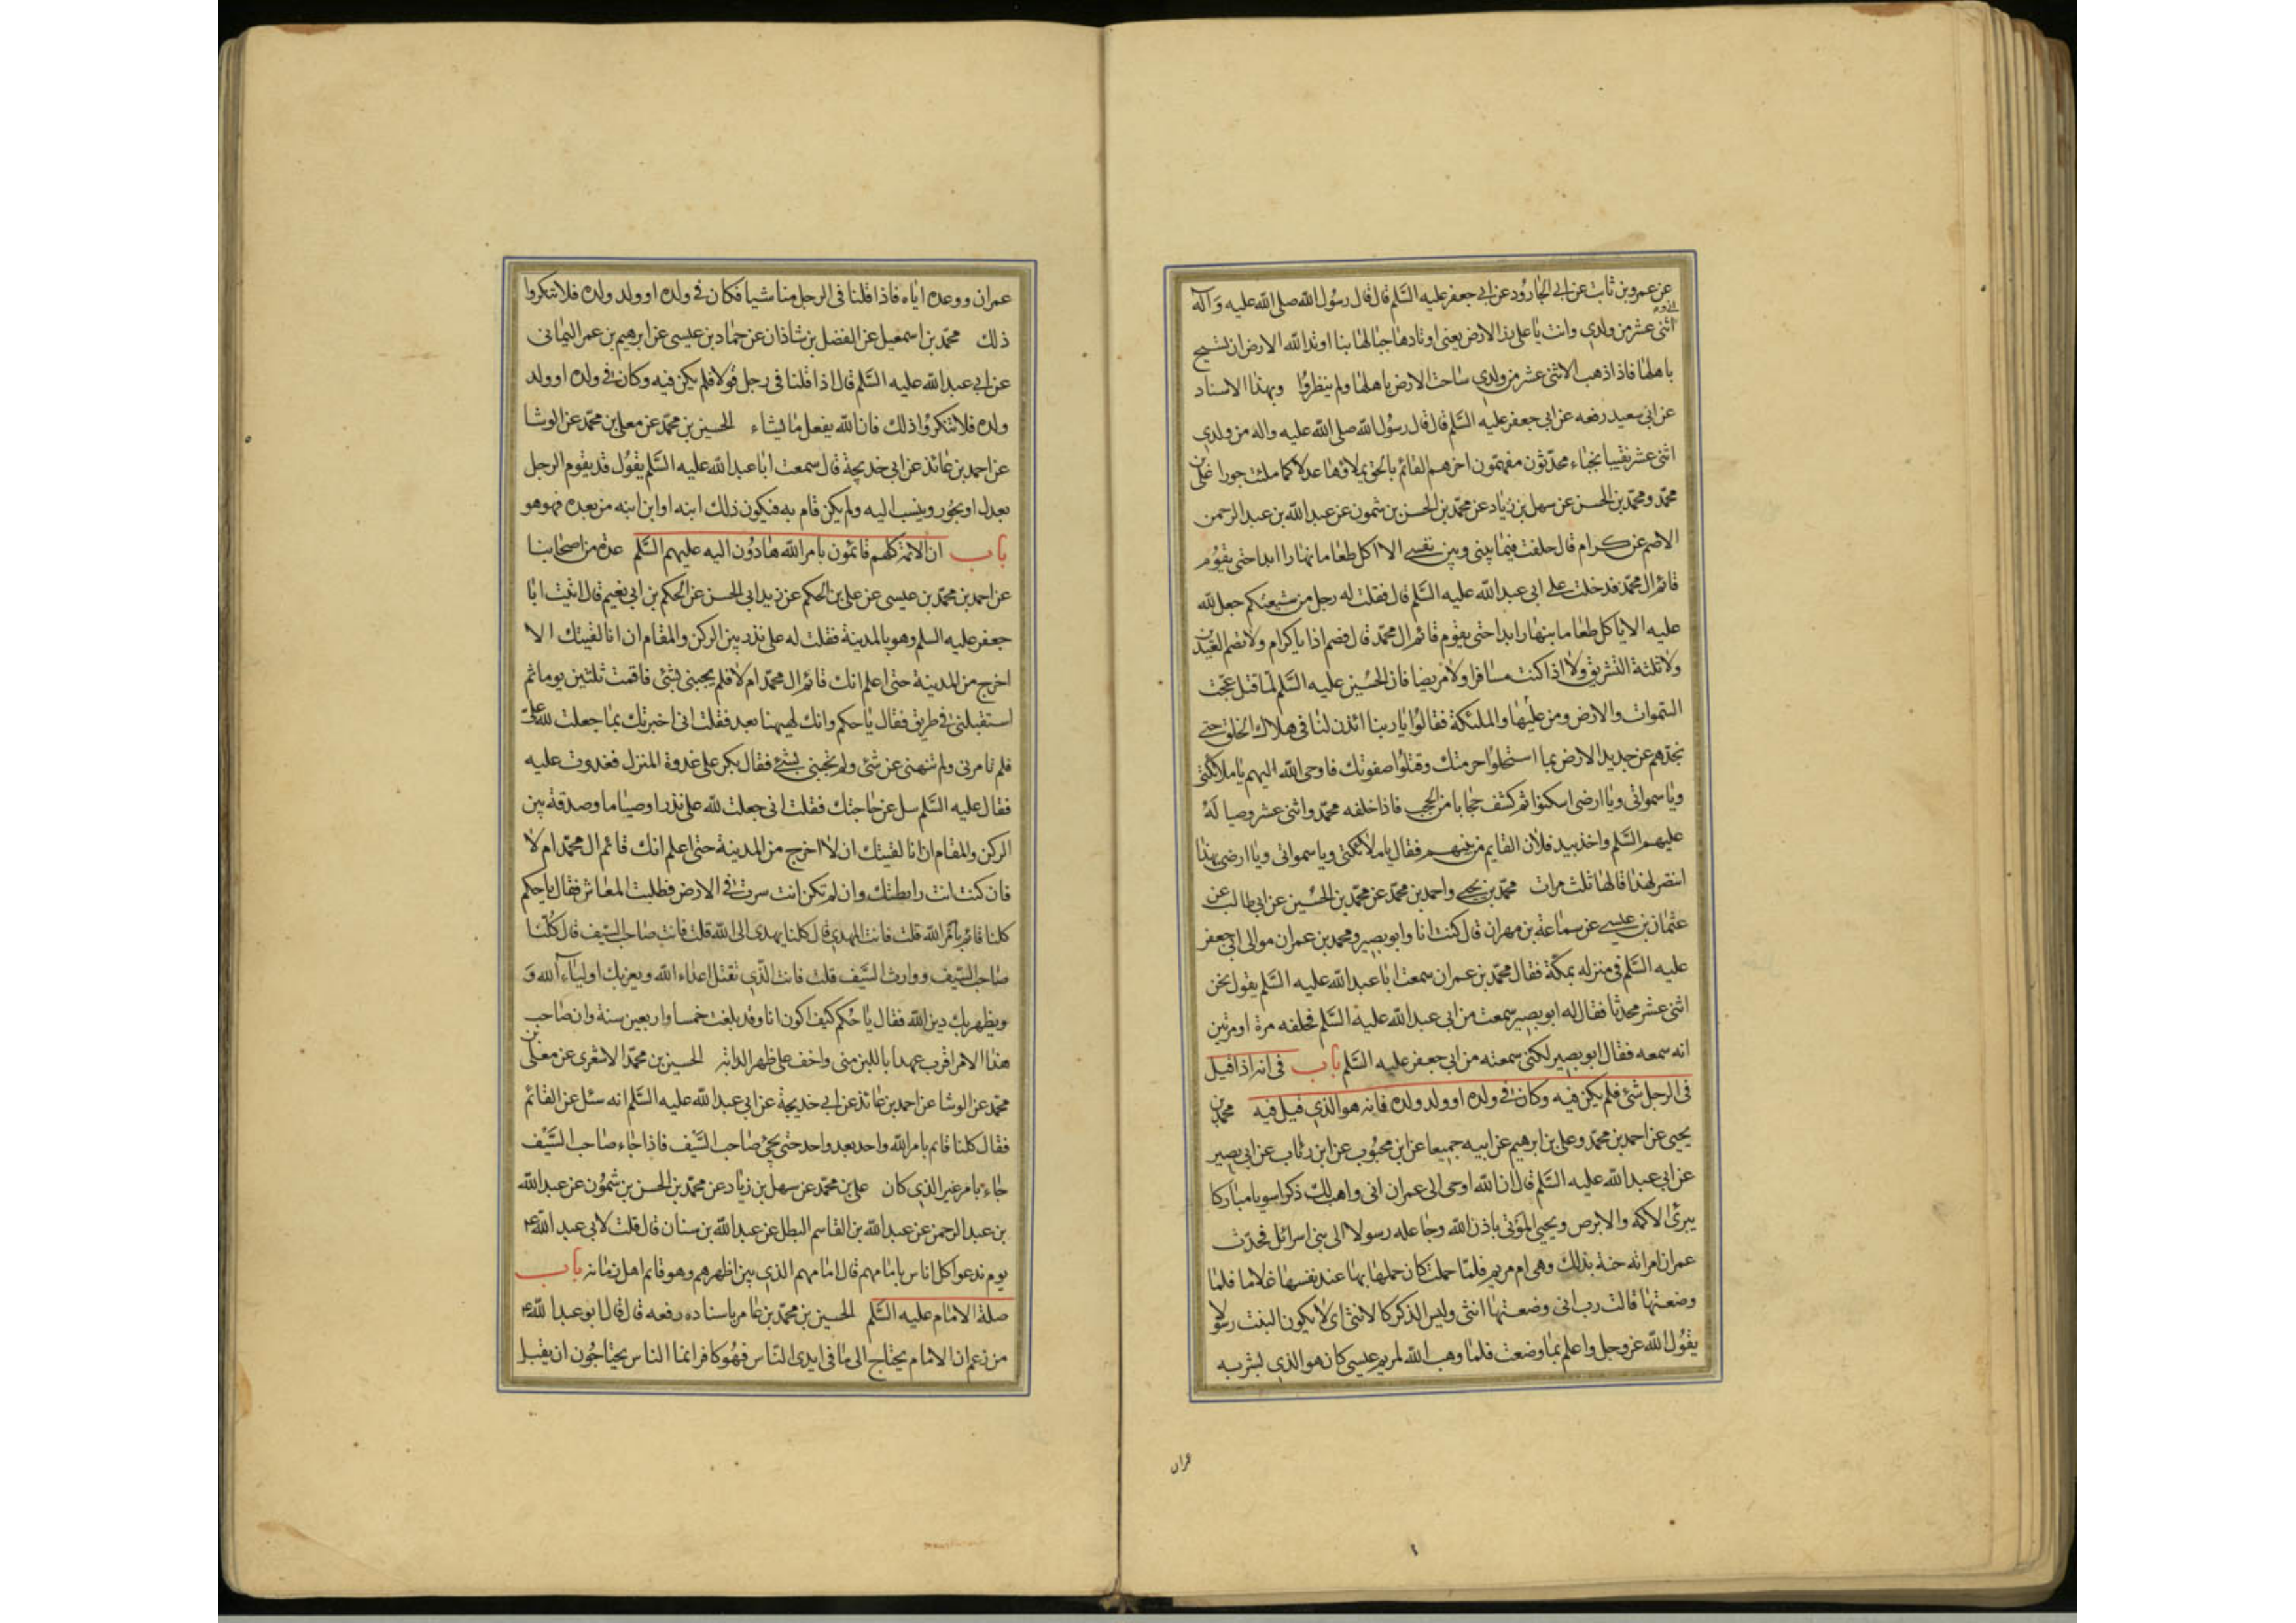 عن عمرو بن ثابت عن ابى الجارود عن ابى جعفر عليه السّلم قال قال رسول الله صلى الله عليه وآله
انى و
اثنى عشر من ولدى وانت يا على زر الارض يعنى اوتادها جبالها بنا اوتد الله الارض ان تسيخ
باهلها فاذا ذهب الاثنى عشر من ولدى ساخت الارض باهلها ولم ينظروا وبهذا الاسناد
عن ابى سعيد رفعه عن ابى جعفر عليه السّلم قال قال رسول الله صلى الله عليه واله من ولدى
اثنى عشر نقيبا نجباء محدّثون مفهمّون اخرهم القائم بالحق يملاؤها عدلا كما ملئت جورا على بن
محمّد ومحمّد بن الحسن عن سهل بن زياد عن محمّد بن الحسن بن شمون عن عبد الله بن عبد الرحمن
الاصم عن كرام قال حلفت فيما بينى وبين نفسى الا اكل طعاما نهارا ابدا حتى يقوم
قائم ال محمّد فدخلت على ابى عبد الله عليه السّلم قال فقلت له رجل من شيعتكم جعل لله
عليه الا ياكل طعاما بنهار ابدا حتى يقوم قائم ال محمّد قال فصم اذا يا كرام ولا تصم العيدين
ولا ثلثة التشريق ولا اذا كنت مسافرا ولا مريضا فان الحسين عليه السّلم لما قتل عجت
السّموات والارض ومن عليها والملئكة فقالوا يا ربنا ائذن لنا فى هلاك الخلق حتى
نجدّهم عن جديد الارض بما استحلوا حرمتك وقتلوا صفوتك فاوحى الله اليهم يا ملائكتى
ويا سمواتى ويا ارضى اسكنوا ثم كشف حجابا من الحجب فاذا خلفه محمّد واثنى عشر وصيا له
عليهم السّلم واخذ بيد فلان القايم من بينهم فقال يا ملائكتى ويا سمواتى ويا ارضى بهذا
انتصر لهذا قالها ثلث مرات محمّد بن يحيى واحمد بن محمّد عن محمّد بن الحسين عن ابى طالب عن
عثمان بن عيسى عن سماعة بن مهران قال كنت انا وابو بصير ومحمد بن عمران موالى ابى جعفر
عليه السّلم فى منزله بمكّة فقال محمّد بن عمران سمعت ابا عبد الله عليه السّلم يقول نحن
اثنى عشر محدثا فقال له ابو بصير سمعت من ابى عبد الله عليه السّلم فحلفه مرة او مرتين
انه سمعه فقال ابو بصير لكنى سمعته من ابى جعفر عليه السّلم باب فى انه اذا قيل
فى الرجل شئ فلم يكن فيه وكان فى ولده او ولد ولده فانه هو الذى قيل فيه محمّد بن
يحيى عن احمد بن محمّد وعلى بن ابرهيم عن ابيه جميعا عن ابن محبوب عن ابن رئاب عن ابى بصير
عن ابى عبد الله عليه السّلم قال ان الله اوحى الى عمران انى واهب لك ذكرا سويا مباركا
يبرئ الاكمه والابرص ويحيى الموتى باذن الله وجاعله رسولا الى بنى اسرائل فحدّث
عمران امراته حنة بذلك وهى ام مريم فلمّا حملت كان حملها بها عند نفسها غلاما فلمّا
وضعتها قالت رب انى وضعتها انثى وليس الذكر كالانثى اى لا يكون البنت رسولا
يقول الله عز وجل واعلم بما وضعت فلما وهب الله لمريم عيسى كان هو الذى بشر به
عمران
عمران ووعده اياه فاذا قلنا فى الرجل منا شيا فكان فى ولده او ولد ولده فلا تنكروا
ذلك محمّد بن اسمعيل عن الفضل بن شاذان عن حماد بن عيسى عن ابرهيم بن عمر اليمانى
عن ابى عبد الله عليه السّلم قال اذا قلنا فى رجل قولا فلم يكن فيه وكان فى ولده او ولد
ولده فلا تنكروا ذلك فان الله يفعل ما يشاء الحسين بن محمّد عن معلى بن محمّد عن الوشا
عن احمد بن عائذ عن ابى خديجة قال سمعت ابا عبد الله عليه السّلم يقول قد يقوم الرجل
بعدل او بجور وينسب اليه ولم يكن قام به فيكون ذلك ابنه او ابن ابنه من بعده فهو هو
باب ان الائمة كلهم قائمون بامر الله هادون اليه عليهم السّلم عدة من اصحابنا
عن احمد بن محمّد بن عيسى عن على بن الحكم عن زيد ابى الحسن عن الحكم بن ابى نعيم قال اتيت ابا
جعفر عليه السلم وهو بالمدينة فقلت له على نذر بين الركن والمقام ان انا لقيتك الا
اخرج من المدينة حتى اعلم انك قائم ال محمّد ام لا فلم يجبنى بشئ فاقمت ثلثين يوما ثم
استقبلنى فى طريق فقال يا حكم وانك لههنا بعد فقلت انى اخبرتك بما جعلت لله علىّ
فلم تامرنى ولم تنهنى عن شئ ولم تجبنى بشئ فقال بكر على غدوة المنزل فغدوت عليه
فقال عليه السّلم سل عن حاجتك فقلت انى جعلت لله على نذرا وصياما وصدقة بين
الركن والمقام ان انا لقيتك ان لا اخرج من المدينة حتى اعلم انك قائم ال محمّد ام لا
فان كنت انت رابطتك وان لم تكن انت سرت فى الارض فطلبت المعاش فقال يا حكم
كلنا قائم بامر الله قلت فانت المهدى قال كلنا يهدى الى الله قلت فانت صاحب السّيف قال كلّنا
صاحب السّيف ووارث السّيف قلت فانت الّذى تقتل اعداء الله ويعز بك اولياء الله و
ويظهر بك دين الله فقال يا حكم كيف اكون انا وقد بلغت خمسا واربعين سنة وان صاحب
هذا الامر اقرب عهدا باللبن منى واخف على ظهر الدابة الحسين بن محمّد الاشعرى عن معلّى بن
محمّد عن الوشا عن احمد بن عائذ عن ابى خديجة عن ابى عبد الله عليه السّلم انه سئل عن القائم
فقال كلنا قائم بامر الله واحد بعد واحد حتى يجئ صاحب السّيف فاذا جاء صاحب السّيف
جاء بامر غير الذى كان على بن محمّد عن سهل بن زياد عن محمّد بن الحسن بن شمّون عن عبد الله
بن عبد الرحمن عن عبد الله بن القاسم البطل عن عبد الله بن سنان قال قلت لابى عبد الله ع
يوم ندعوا كل اناس بامامهم قال امامهم الذى بين اظهرهم وهو قايم اهل زمانه باب
صلة الامام عليه السّلم الحسين بن محمّد بن عامر باسناده رفعه قال قال ابو عبد الله ع
من زعم ان الامام يحتاج الى ما فى ايدى النّاس فهو كافر انما الناس يحتاجون ان يقبل